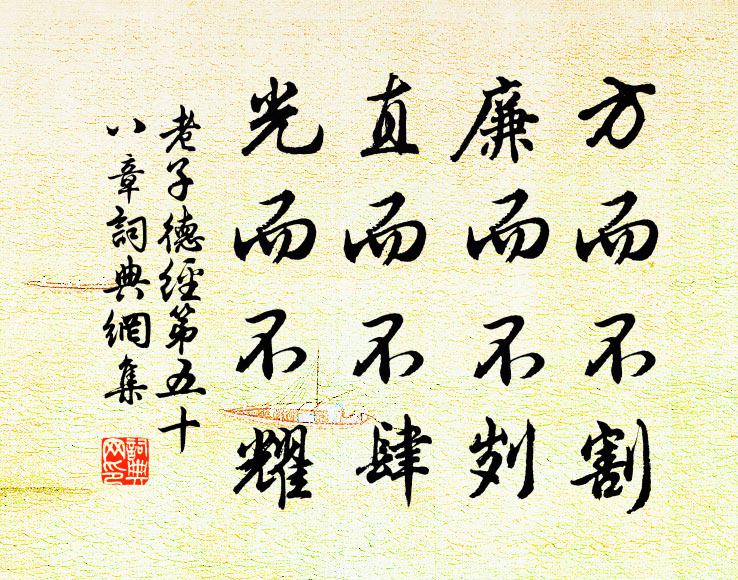 方而不割
廉而不刿
直而不肆
光而不耀
老子德經第五十
八章詞典網集
詞典
网印